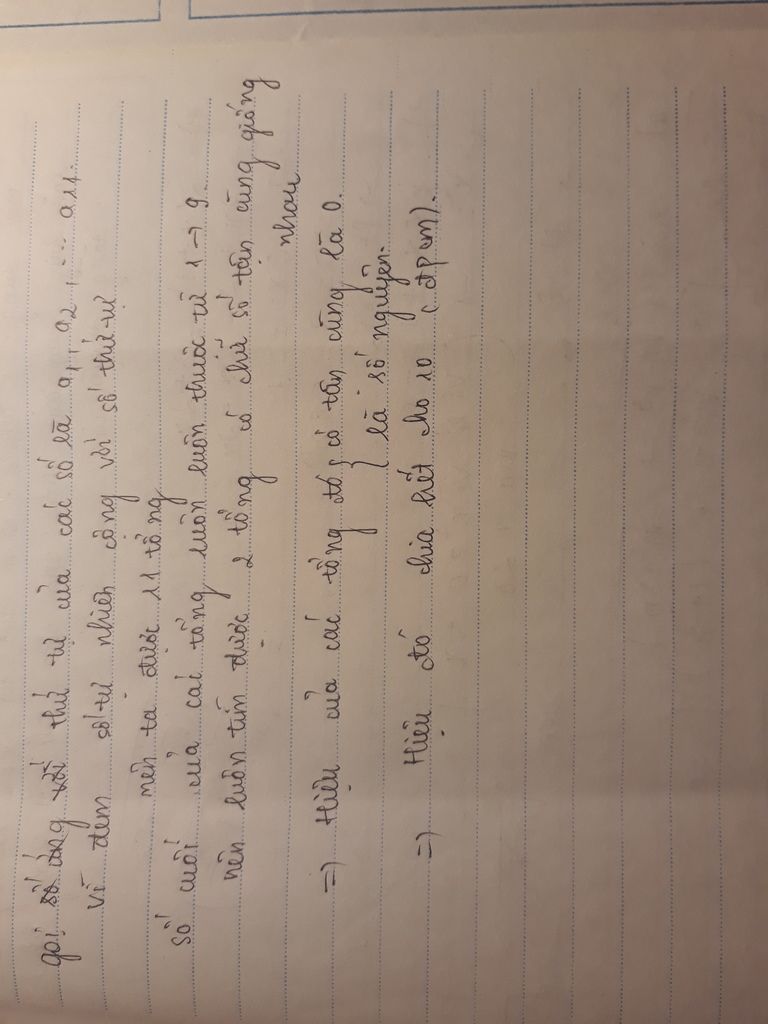 gọi số ứng với thứ tự của các số là a1, a2, ... a11.
Vì đem số tự nhiên cộng với số thứ tự
nên ta được 11 tổng
số cuối của các tổng luôn luôn thuộc từ 1 → 9.
nên luôn tìm được 2 tổng có chữ số tận cùng giống
nhau
=) Hiệu của các tổng đó { có tận cùng là 0.
{ là số nguyên.
=) Hiệu đó chia hết cho 10 (đpcm).